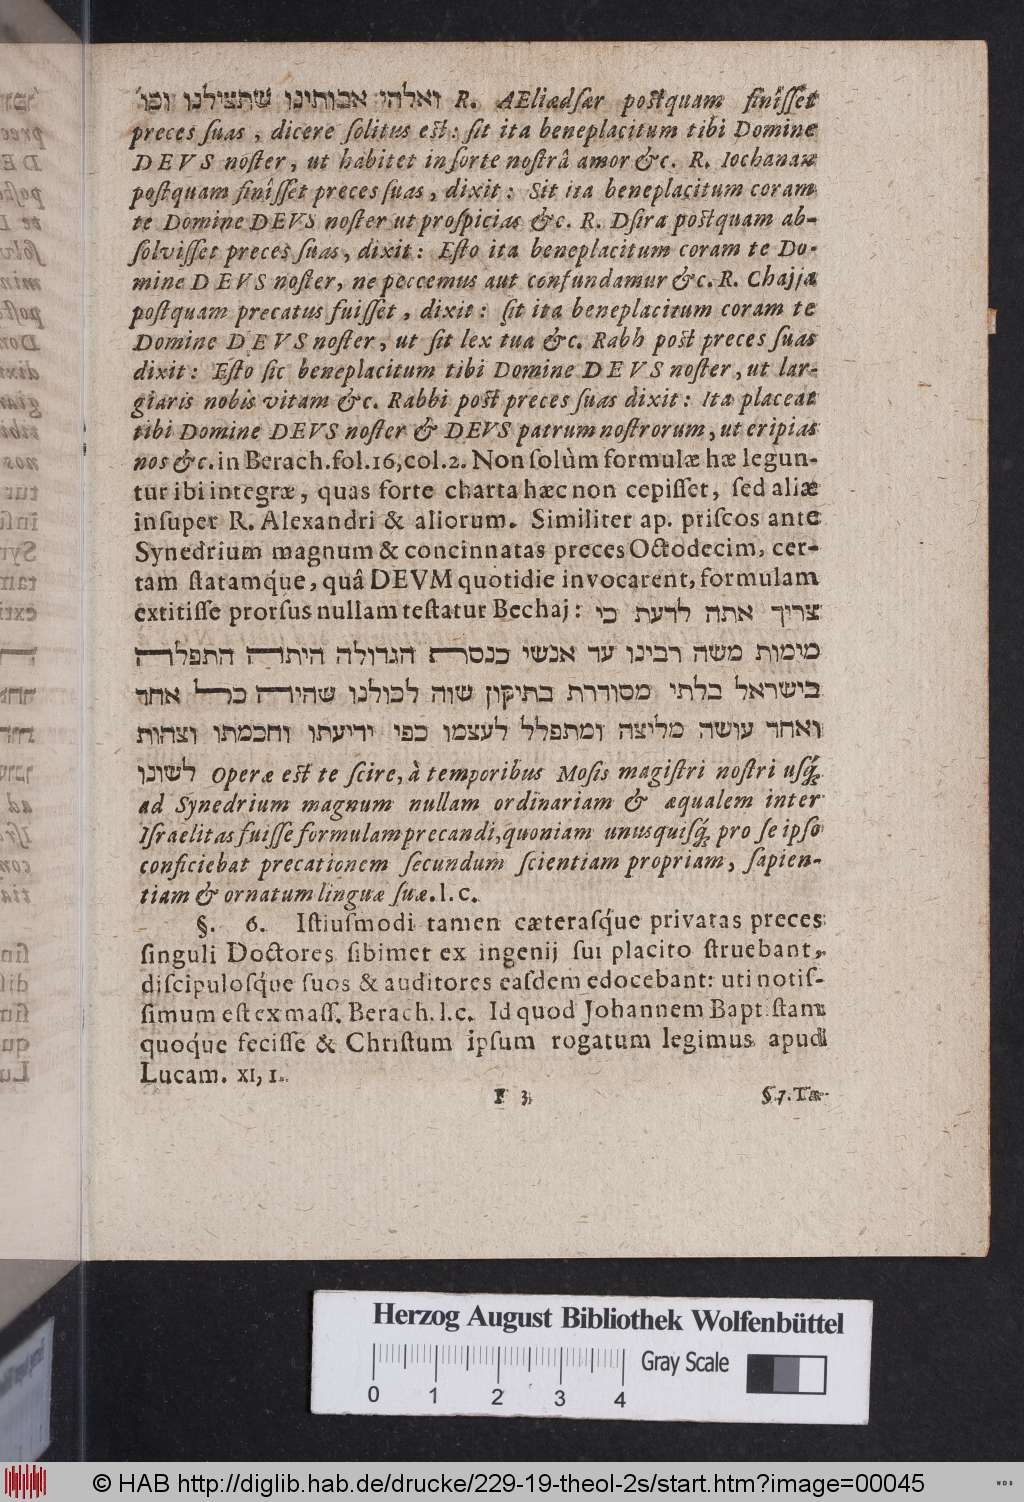 ואלהי אבותינו שתצילנו וכו׳ R. AEliædſær poſtquam finiſſet
preces ſuas, dicere ſolitus eſt: ſit ita beneplacitum tibi Domine
DEVS noſter, ut habitet in ſorte noſtrâ amor &c. R. Iochanan
poſtquam finiſſet preces ſuas, dixit: Sit ita beneplacitum coram
te Domine DEVS noſter ut proſpicias &c. R. Dſira poſtquam ab-
ſolviſſet preces ſuas, dixit: Eſto ita beneplacitum coram te Do-
mine DEVS noſter, ne peccemus aut confundamur &c. R. Chajja
poſtquam precatus fuiſſet, dixit: ſit ita beneplacitum coram te
Domine DEVS noſter, ut ſit lex tua &c. Rabh poſt preces ſuas
dixit: Eſto ſic beneplacitum tibi Domine DEVS noſter, ut lar-
giaris nobis vitam &c. Rabbi poſt preces ſuas dixit: Ita placeat
tibi Domine DEVS noſter & DEVS patrum noſtrorum, ut eripias
nos &c. in Berach. fol. 16, col. 2. Non ſolùm formulæ hæ legun-
tur ibi integræ, quas forte charta hæc non cepiſſet, ſed aliæ
inſuper R. Alexandri & aliorum. Similiter ap. priſcos ante
Synedrium magnum & concinnatas preces Octodecim, cer-
tam ſtatamq́ue, quâ DEVM quotidie invocarent, formulam
extitiſſe prorſus nullam teſtatur Bechaj: צריך אתה לדעת כי
מימות משה רבינו עד אנשי כנסת הגדולה היתה התפלה
בישראל בלתי מסודרת בתיקון שוה לכולנו שהיה כל אחד
ואחד עושה מליצה ומתפלל לעצמו כפי ידיעתו וחכמתו וצהות
לשונו Operæ eſt te ſcire, à temporibus Moſis magiſtri noſtri uſq́;
ad Synedrium magnum nullam ordinariam & æqualem inter
Iſraelitas fuiſſe formulam precandi, quoniam unusquiſq́; pro ſe ipſo
conficiebat precationem ſecundum ſcientiam propriam, ſapien-
tiam & ornatum linguæ ſuæ. l. c.
§. 6. Iſtiuſmodi tamen cæteraſq́ue privatas preces
ſinguli Doctores ſibimet ex ingenij ſui placito ſtruebant,
diſcipulosq́ue ſuos & auditores easdem edocebant: uti notiſ-
ſimum eſt ex maſſ. Berach. l. c. Id quod Johannem Baptiſtam
quoq́ue feciſſe & Chriſtum ipſum rogatum legimus apud
Lucam. XI, 1.
F 3
§ 7. Tæ-
Herzog August Bibliothek Wolfenbüttel
0 1 2 3 4
Gray Scale
© HAB http://diglib.hab.de/drucke/229-19-theol-2s/start.htm?image=00045